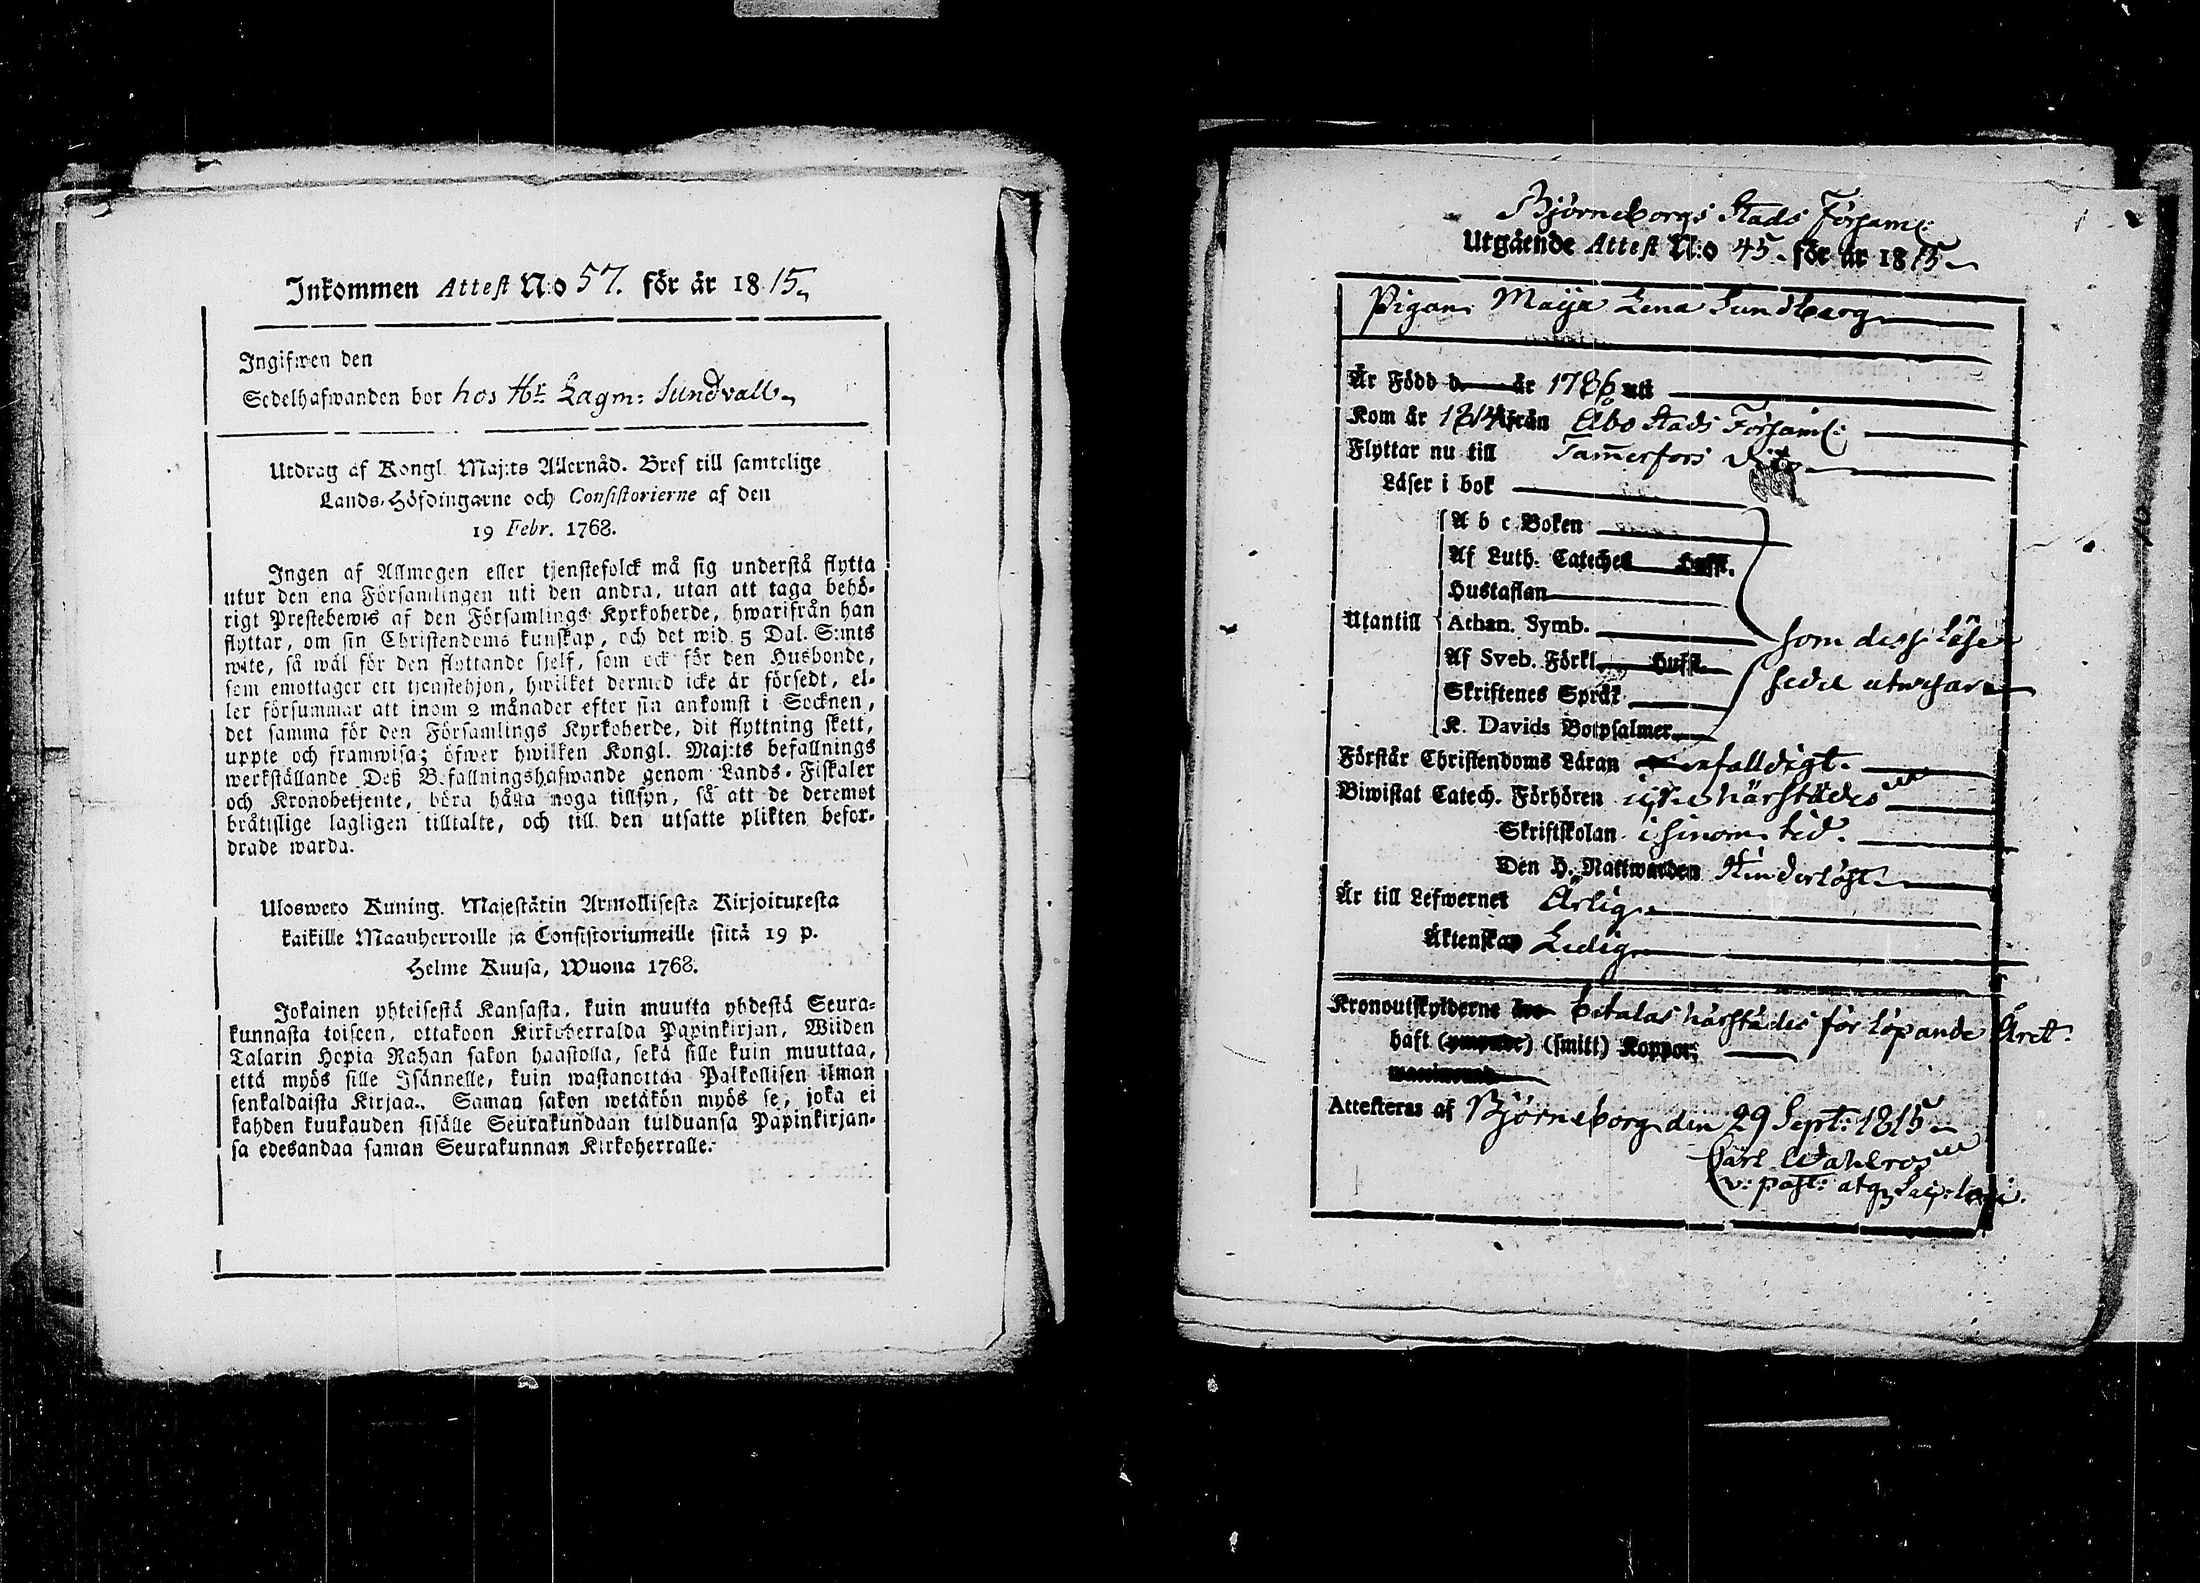 Inkommen Attest N:o 57. för år 1815.
Ingifwen den
Sedelhafwanden bor hos Hr Lagm: Sundvall
Utdrag af Kongl. Maj:ts Allernåd. Bref till samtelige
Lands-Höfdingarne och Consistorierne af den
19 Febr. 1768.
Ingen af Allmogen eller tjenstefolck må sig understå flytta
utur den ena Församlingen uti den andra, utan att taga behö-
rigt Prestebewis af den Församlings Kyrkoherde, hwarifrån han
flyttar, om sin Christendoms kunskap, och det wid 5 Dal. S:mts
wite, så wäl för den flyttande sjelf, som ock för den Husbonde,
som emottager ett tjenstehjon, hwilket dermed icke är försedt, el-
ler försummar att inom 2 månader efter sin ankomst i Socknen,
det samma för den Församlings Kyrkoherde, dit flyttning skett,
uppte och framwisa; öfwer hwilken Kongl. Maj:ts befallnings
werkställande Deß Befallningshafwande genom Lands-Fiskaler
och Kronobetjente, böra hålla noga tillsyn, så att de deremot
bråtslige lagligen tilltalte, och till den utsatte plikten befor-
drade warda.
Ulosweto Kuning. Majestätin Armollisesta Kirjoituxesta
kaikille Maanherroille ja Consistoriumeille siitä 19 p.
Helme Kuusa, Wuona 1768.
Jokainen yhteisestä Kansasta, kuin muutta yhdestä Seura-
kunnasta toiseen, ottakoon Kirkoherralda Papinkirjan, Wiiden
Talarin Hopia Rahan sakon haastolla, sekä sille kuin muuttaa,
että myös sille Isännelle, kuin wastanottaa Palkollisen ilman
senkaldaista Kirjaa. Saman sakon wetäkön myös se, joka ei
kahden kuukauden sisälle Seurakundaan tulduansa Papinkirjan-
sa edesandaa saman Seurakunnan Kirkoherralle.
Björneborgs Stads Församl:
Utgående Attest N:o 45. för år 1815
Pigan Maija Lena Sundberg
Är Född d. år 1786 uti
Kom år 1814 från Åbo Stads Församl:
Flyttar nu till Tam̄erfors dito
Läser i bok
A b c Boken
Af Luth. Cateches Hufst.
Hustaflan
Utantill Athan. Symb.
som dess läse
Af Sveb. Förkl. Hufst.
sedel utwisar
Skriftenes Språk
K. Davids Botpsalmer
Förstår Christendoms Läran enfalldigt.
Biwistat Catech. Förhören icke härstädes
Skriftskolan i sinom tid.
Den H. Nattwarden Hinderlöst
Är till Lefwernet Ärlig
Äktenskap Ledig
Kronoutskylderne betalas härstädes för löpande Året.
haft (smitt) Koppor;
Attesteras af Björneborg den 29 Sept: 1815
Carl Wahlroos
v: past: